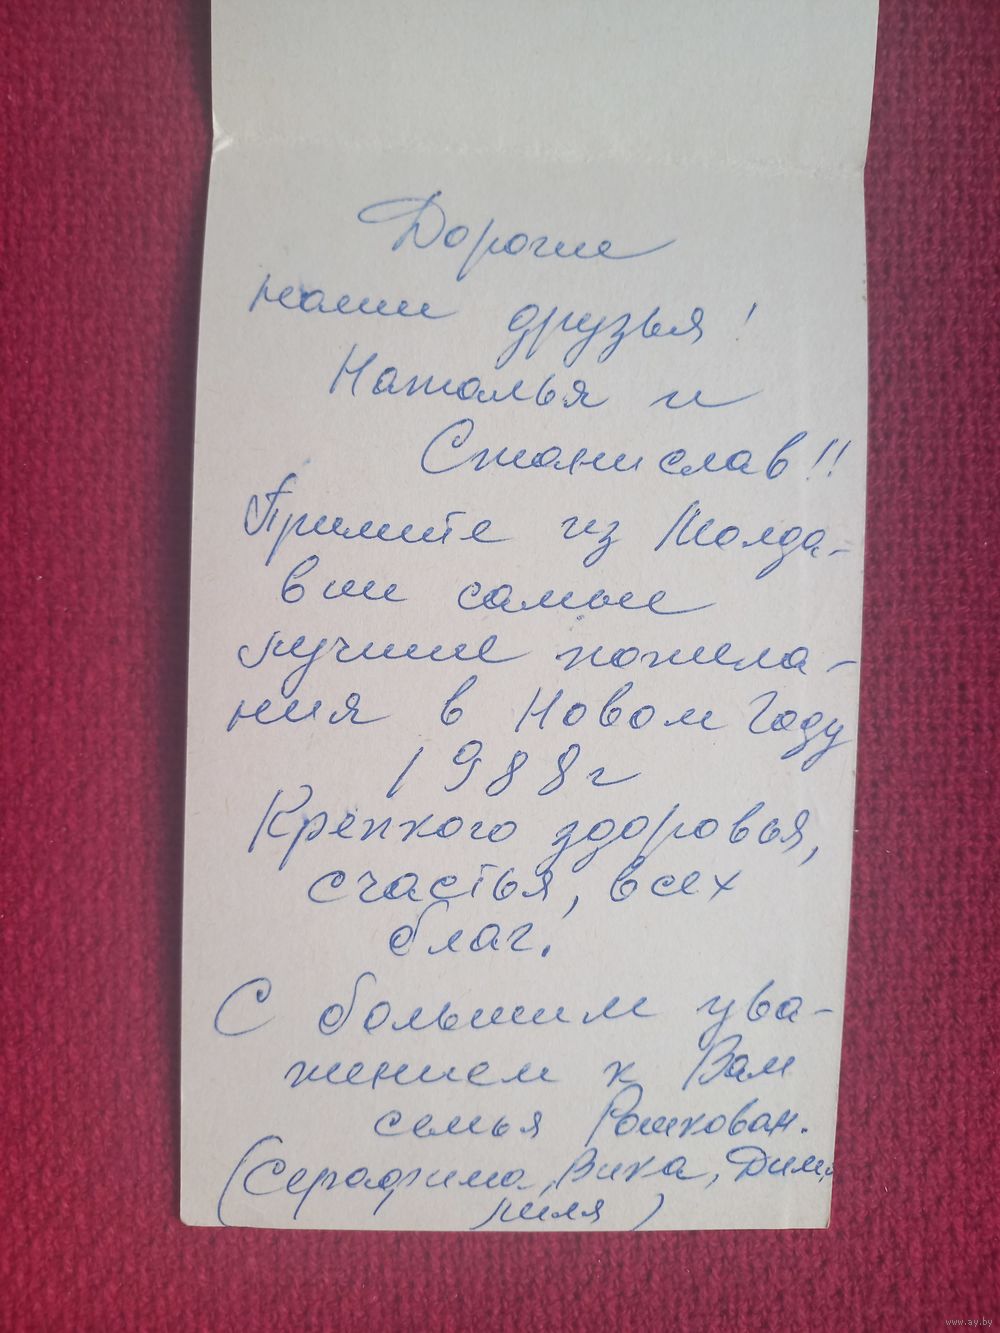 Дорогие
наши друзья!
Наталья и
Станислав!!
Примите из Молда-
вии самые
лучшие пожела-
ния в Новом Году
1988г
Крепкого здоровья,
счастья, всех
благ.
С большим ува-
жением к Вам
семья Рошкован.
(Серафима, Вика, Дима,
)
www.ay.by